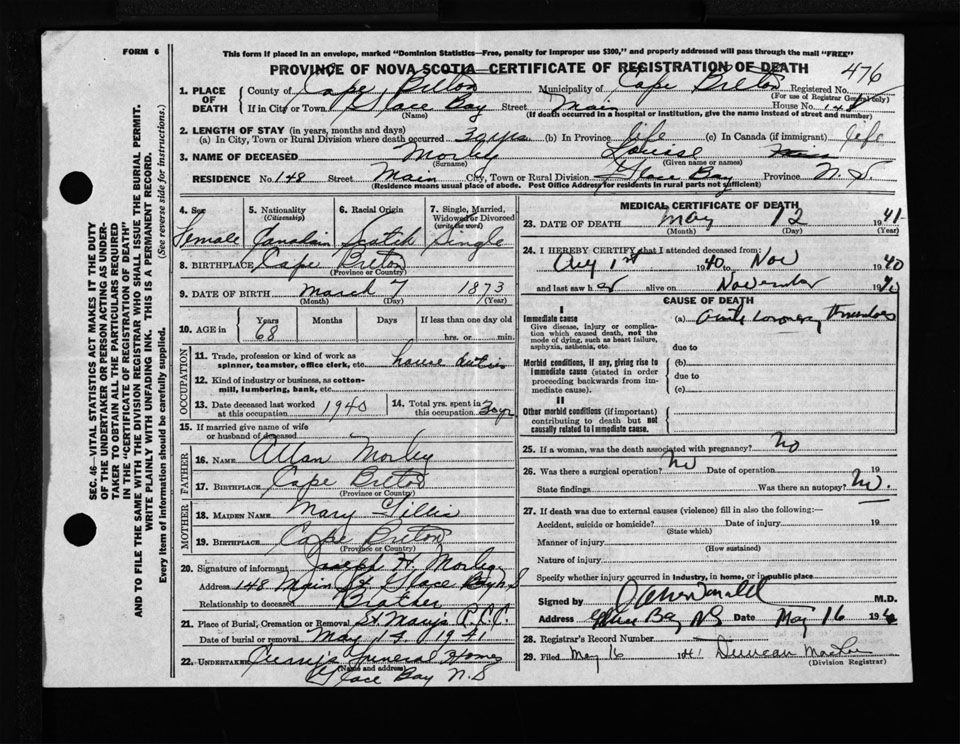 FORM 6
This form if placed in an envelope, marked "Dominion Statistics—Free, penalty for improper use $300," and properly addressed will pass through the mail "FREE"
PROVINCE OF NOVA SCOTIA—CERTIFICATE OF REGISTRATION OF DEATH 476
1. PLACE OF DEATH County of Cape Breton Municipality of Cape Breton Registered No.
(For use of Registrar General only)
If in City or Town Glace Bay Street Main House No. 148
(Name) (If death occurred in a hospital or institution, give the name instead of street and number)
2. LENGTH OF STAY (in years, months and days)
(a) In City, Town or Rural Division where death occurred 30 yrs (b) In Province life (c) In Canada (if immigrant) life
3. NAME OF DECEASED Morley Louise
(Surname) (Given name or names)
RESIDENCE No. 148 Street Main City, Town or Rural Division Glace Bay Province N.S.
(Residence means usual place of abode. Post Office Address for residents in rural parts not sufficient)
4. Sex 5. Nationality (Citizenship) 6. Racial Origin 7. Single, Married, Widowed or Divorced (write the word)
Female Canadain Scotch Single
8. BIRTHPLACE Cape Breton
(Province or Country)
9. DATE OF BIRTH March 7 1873
(Month) (Day) (Year)
10. AGE in Years Months Days If less than one day old
68 hrs. or min.
OCCUPATION
11. Trade, profession or kind of work as spinner, teamster, office clerk, etc. house duties
12. Kind of industry or business, as cotton-mill, lumbering, bank, etc.
13. Date deceased last worked at this occupation 1940 14. Total yrs. spent in this occupation 30 yr
15. If married give name of wife or husband of deceased
FATHER
16. NAME Allan Morley
17. BIRTHPLACE Cape Breton
(Province or Country)
MOTHER
18. MAIDEN NAME Mary Gillis
19. BIRTHPLACE Cape Breton
(Province or Country)
20. Signature of informant Joseph H. Morley
Address 148 Main St Glace Bay N.S
Relationship to deceased Brother
21. Place of Burial, Cremation or Removal St. Marys R.C.C.
Date of burial or removal May 14, 1941
22. UNDERTAKER Curry's Funeral Home
(Name and address)
Glace Bay N.S
MEDICAL CERTIFICATE OF DEATH
23. DATE OF DEATH May 12 1941
(Month) (Day) (Year)
24. I HEREBY CERTIFY that I attended deceased from:
Aug 1st 1940 to Nov 1940
and last saw her alive on November 1940
CAUSE OF DEATH
I
Immediate cause (a) Acute Coronary Thrombosis
Give disease, injury or complication which caused death, not the mode of dying, such as heart failure, asphyxia, asthenia, etc.
due to
Morbid conditions, if any, giving rise to immediate cause (stated in order proceeding backwards from immediate cause).
(b)
due to
(c)
II
Other morbid conditions (if important) contributing to death but not causally related to immediate cause.
25. If a woman, was the death associated with pregnancy? No
26. Was there a surgical operation? No Date of operation 19
State findings Was there an autopsy? No.
27. If death was due to external causes (violence) fill in also the following:—
Accident, suicide or homicide? Date of injury 19
(State which)
Manner of injury
(How sustained)
Nature of injury
Specify whether injury occurred in industry, in home, or in public place
Signed by M.D.
Address Glace Bay NS Date May 16 19
28. Registrar's Record Number
29. Filed May 16 1941 Duncan
(Division Registrar)
SEC. 46—VITAL STATISTICS ACT MAKES IT THE DUTY
OF THE UNDERTAKER OR PERSON ACTING AS UNDER-
TAKER TO OBTAIN ALL THE PARTICULARS REQUIRED
IN THE "CERTIFICATE OF REGISTRATION OF DEATH"
AND TO FILE THE SAME WITH THE DIVISION REGISTRAR WHO SHALL ISSUE THE BURIAL PERMIT.
WRITE PLAINLY WITH UNFADING INK. THIS IS A PERMANENT RECORD.
Every item of information should be carefully supplied. (See reverse side for instructions.)